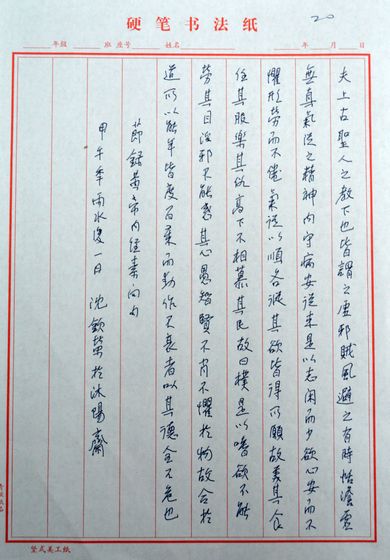 硬笔书法纸
20
年级 班 座号 姓名 年 月 日
夫上古聖人之教下也皆謂之虛邪賊風避之有時恬澹虛
無真氣從之精神內守病安從來是以志闲而少欲心安而不
懼形勞而不倦氣從以順各從其欲皆得所願故美其食
任其服樂其俗高下不相慕其民故曰樸是以嗜欲不能
勞其目淫邪不能惑其心愚智賢不肖不懼於物故合於
道所以能年皆度百歲而動作不衰者以其德全不危也
節錄黃帝內經素問句
甲午年雨水後一日 沈欽榮於沐陽齋
竖式美工纸